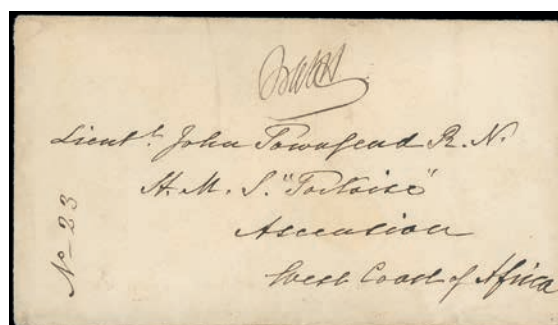 Lieut. John Townsend R. N.
H. M. S. "Tortoise"
Ascension
West Coast of Africa
No 23